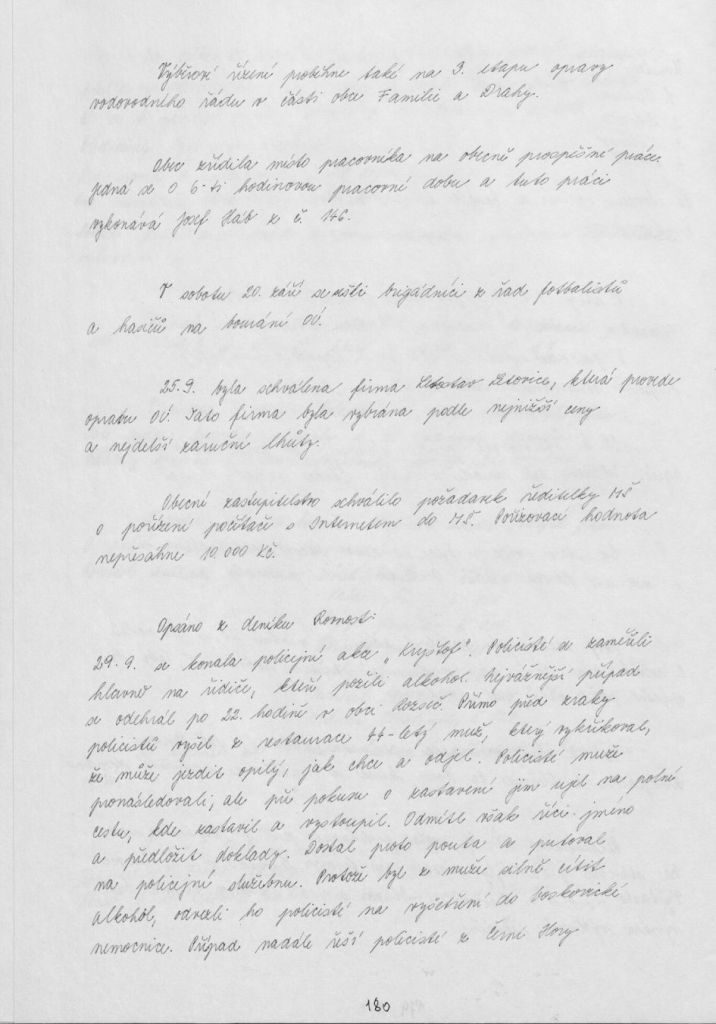 Výběrové řízení proběhne také na 3. etapu opravy
vodovodního řádu v části obce Familie a Drahy.
Obec zřídila místo pracovníka na obecně prospěšné práce.
Jedná se o 6-ti hodinovou pracovní dobu a tuto práci
vykonává Josef Háb z č. 146.
V sobotu 20. září se sešli brigádníci z řad fotbalistů
a hasičů na bourání OÚ.
25.9. byla schválena firma Letostav Letovice, která provede
opravu OÚ. Tato firma byla vybrána podle nejnižší ceny
a nejdelší záruční lhůty.
Obecní zastupitelstvo schválilo požadavek ředitelky MŠ
o pořízení počítače s Internetem do MŠ. Pořizovací hodnota
nepřesáhne 10.000 Kč.
Opsáno z deníku Rovnost:
29.9. se konala policejní akce "Kryštof". Policisté se zaměřili
hlavně na řidiče, kteří požili alkohol. Nejvážnější případ
se odehrál po 22. hodině v obci Rozseč. Přímo před zraky
policistů vyšel z restaurace 44-letý muž, který vykřikoval,
že může jezdit opilý, jak chce a odjel. Policisté muže
pronásledovali, ale při pokusu o zastavení jim ujel na polní
cestu, kde zastavil a vystoupil. Odmítl však říci jméno
a předložit doklady. Dostal proto pouta a putoval
na policejní služebnu. Protože byl z muže silně cítit
alkohol, odvezli ho policisté na vyšetření do boskovické
nemocnice. Případ nadále řeší policisté z Černé Hory
180